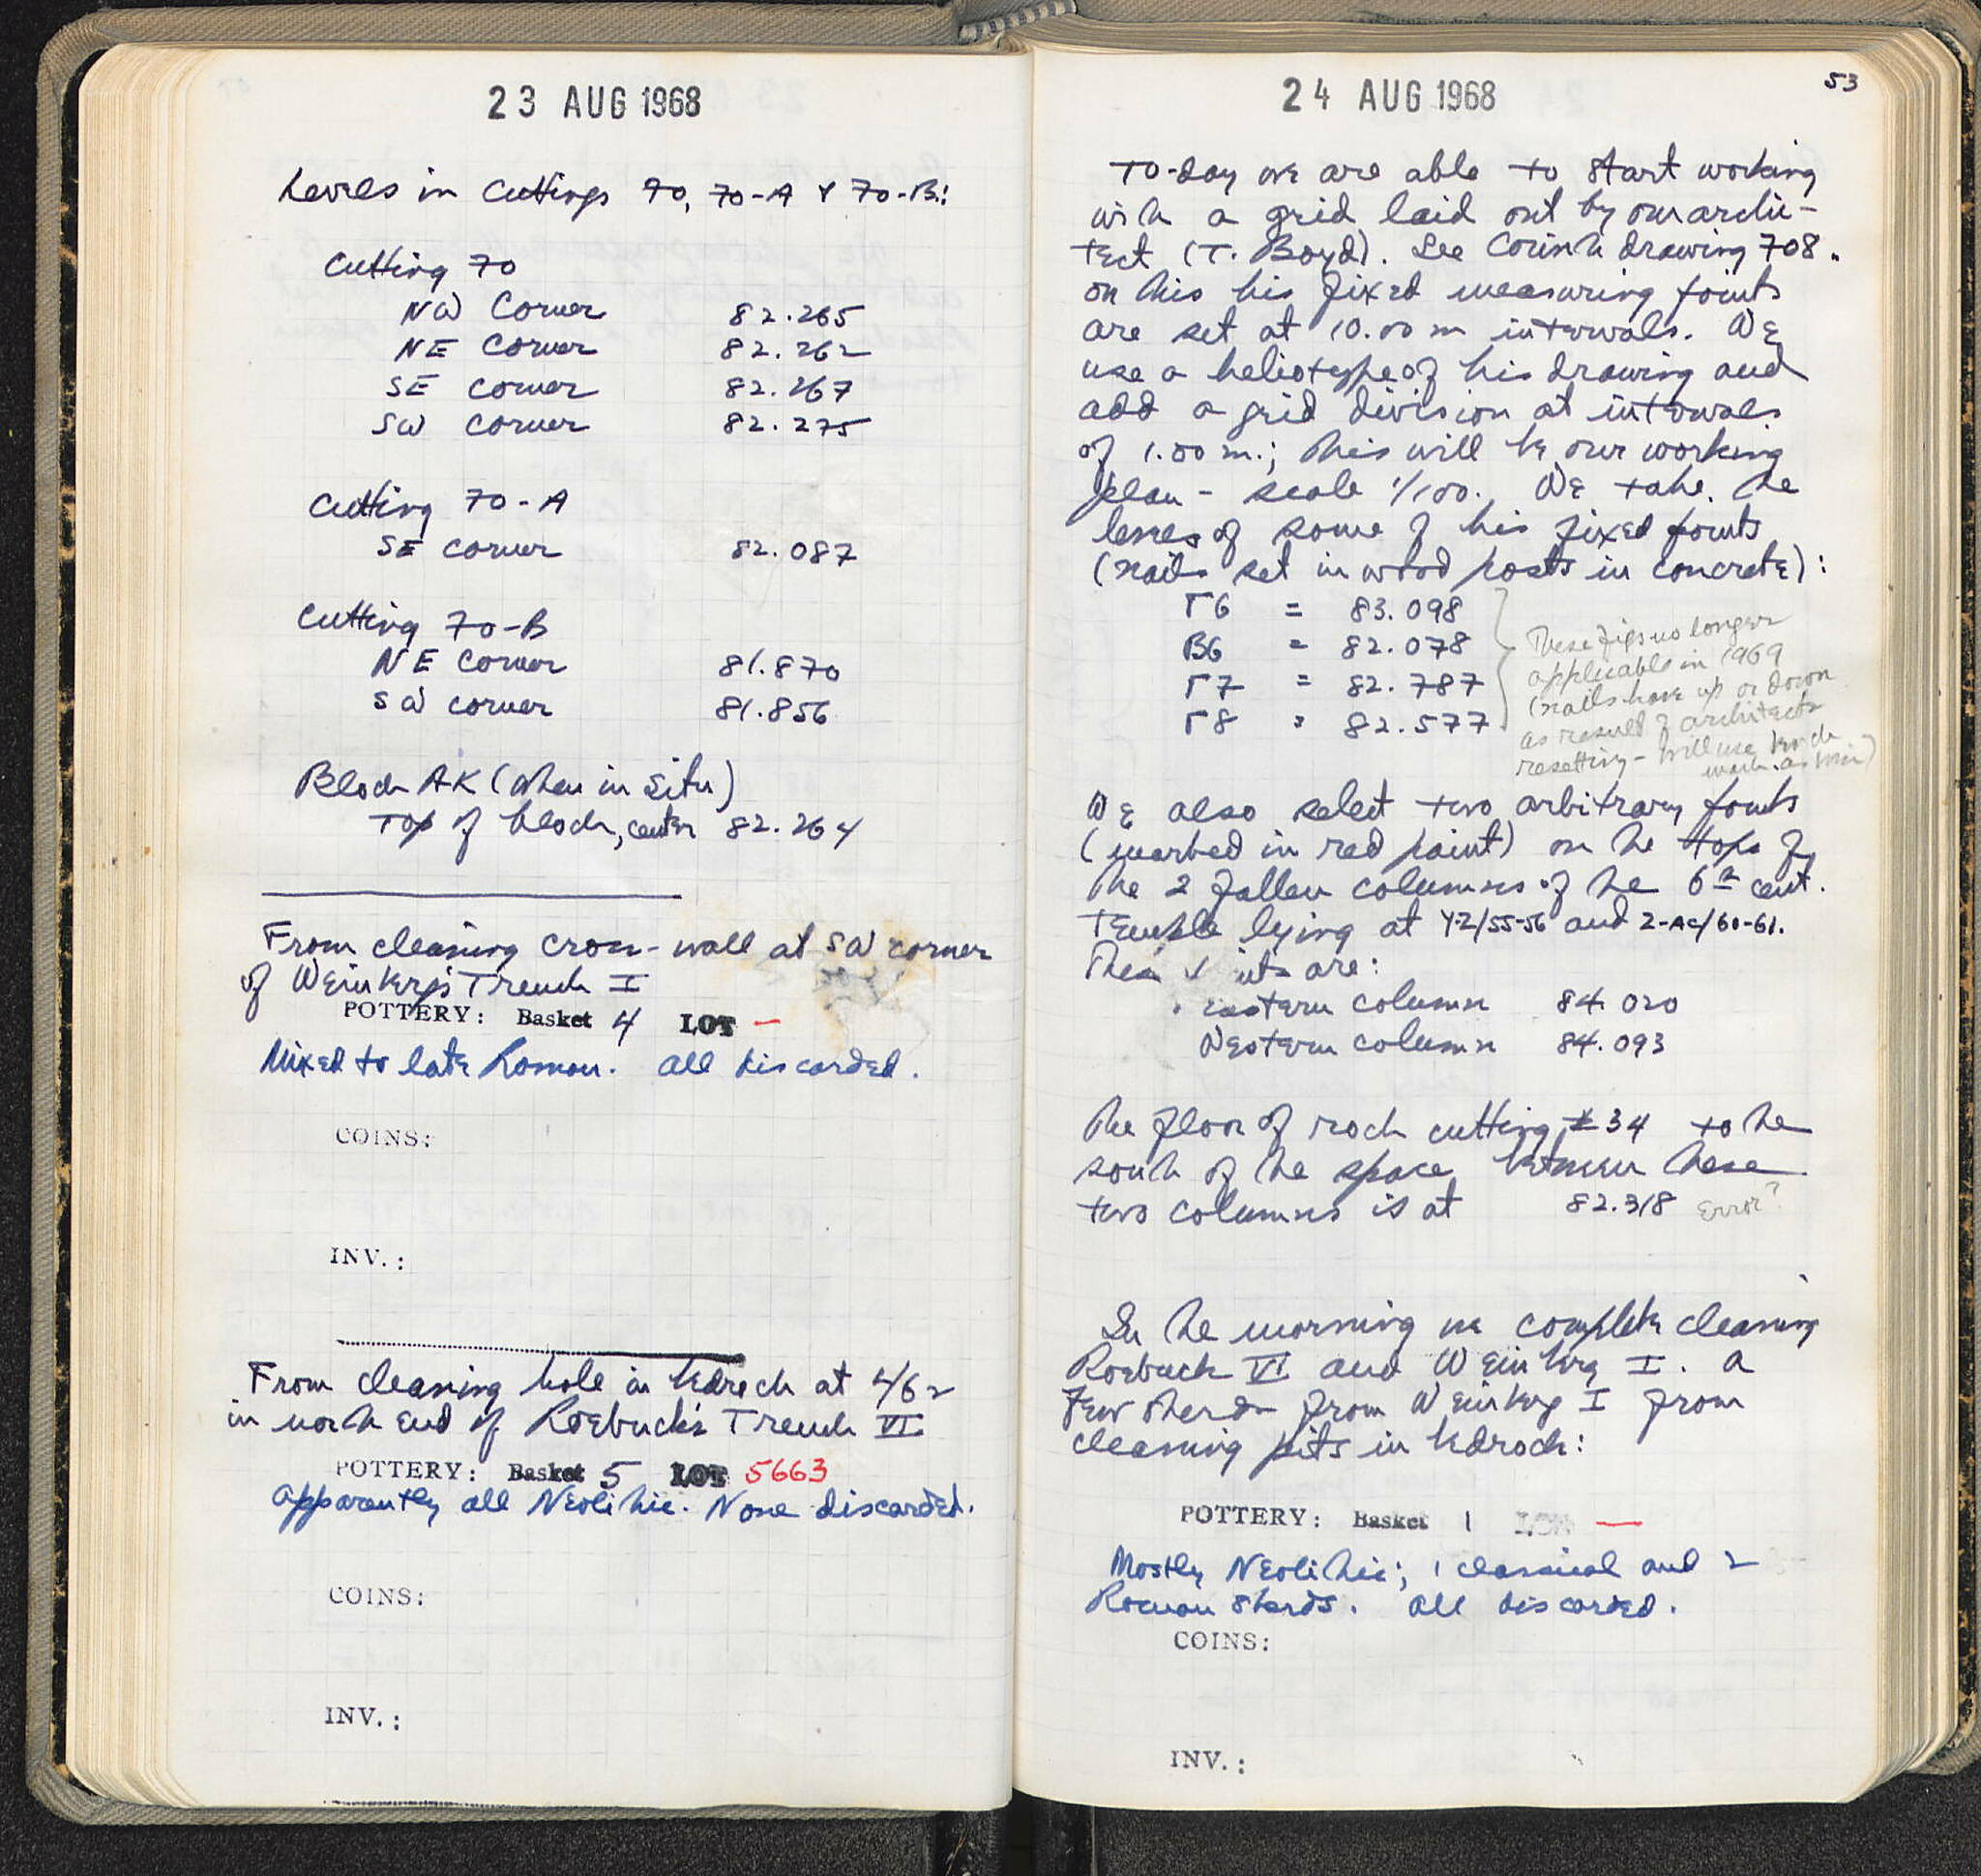 23 AUG 1968
Levels in Cuttings 70, 70-A & 70-B:
Cutting 70
NW Corner 82.265
NE Corner 82.262
SE corner 82.267
SW corner 82.275
Cutting 70-A
SE corner 82.087
Cutting 70-B
NE corner 81.870
SW corner 81.856
Block AK (when in situ)
Top of block, center 82.264
From cleaning cross-wall at SW corner
of Weinberg's Trench I
POTTERY: Basket 4 LOT —
Mixed to late Roman. All discarded.
COINS:
INV.:
From cleaning hole in bedrock at 4/62
in north end of Roebuck's Trench VI
POTTERY: Basket 5 LOT 5663
Apparently all Neolithic. None discarded.
COINS:
INV.:
53
24 AUG 1968
To-day we are able to start working
with a grid laid out by our archi-
tect (T. Boyd). See Corinth drawing 708.
On this his fixed measuring points
are set at 10.00 m intervals. We
use a heliotype of his drawing and
add a grid division at intervals
of 1.00 m.; this will be our working
plan - scale 1/100. We take the
levels of some of his fixed points
(nails set in wood posts in concrete):
Γ6 = 83.098
B6 = 82.078
Γ7 = 82.787
Γ8 = 82.577
These figs no longer
applicable in 1969
(nails have up or down
as result of architects
resetting - will use bench
mark as main)
We also select two arbitrary points
(marked in red paint) on the tops of
the 2 fallen columns of the 6th cent.
Temple lying at Y-Z/55-56 and Z-AC/60-61.
These are:
Eastern column 84.020
Western column 84.093
The floor of rock cutting #34 to the
south of the space between these
two columns is at 82.318 Error?
In the morning we complete cleaning
Roebuck VI and Weinberg I. A
few sherds from Weinberg I from
cleaning pits in bedrock:
POTTERY: Basket 1 LOT —
Mostly Neolithic; 1 classical and 2
Roman sherds. All discarded.
COINS:
INV.: